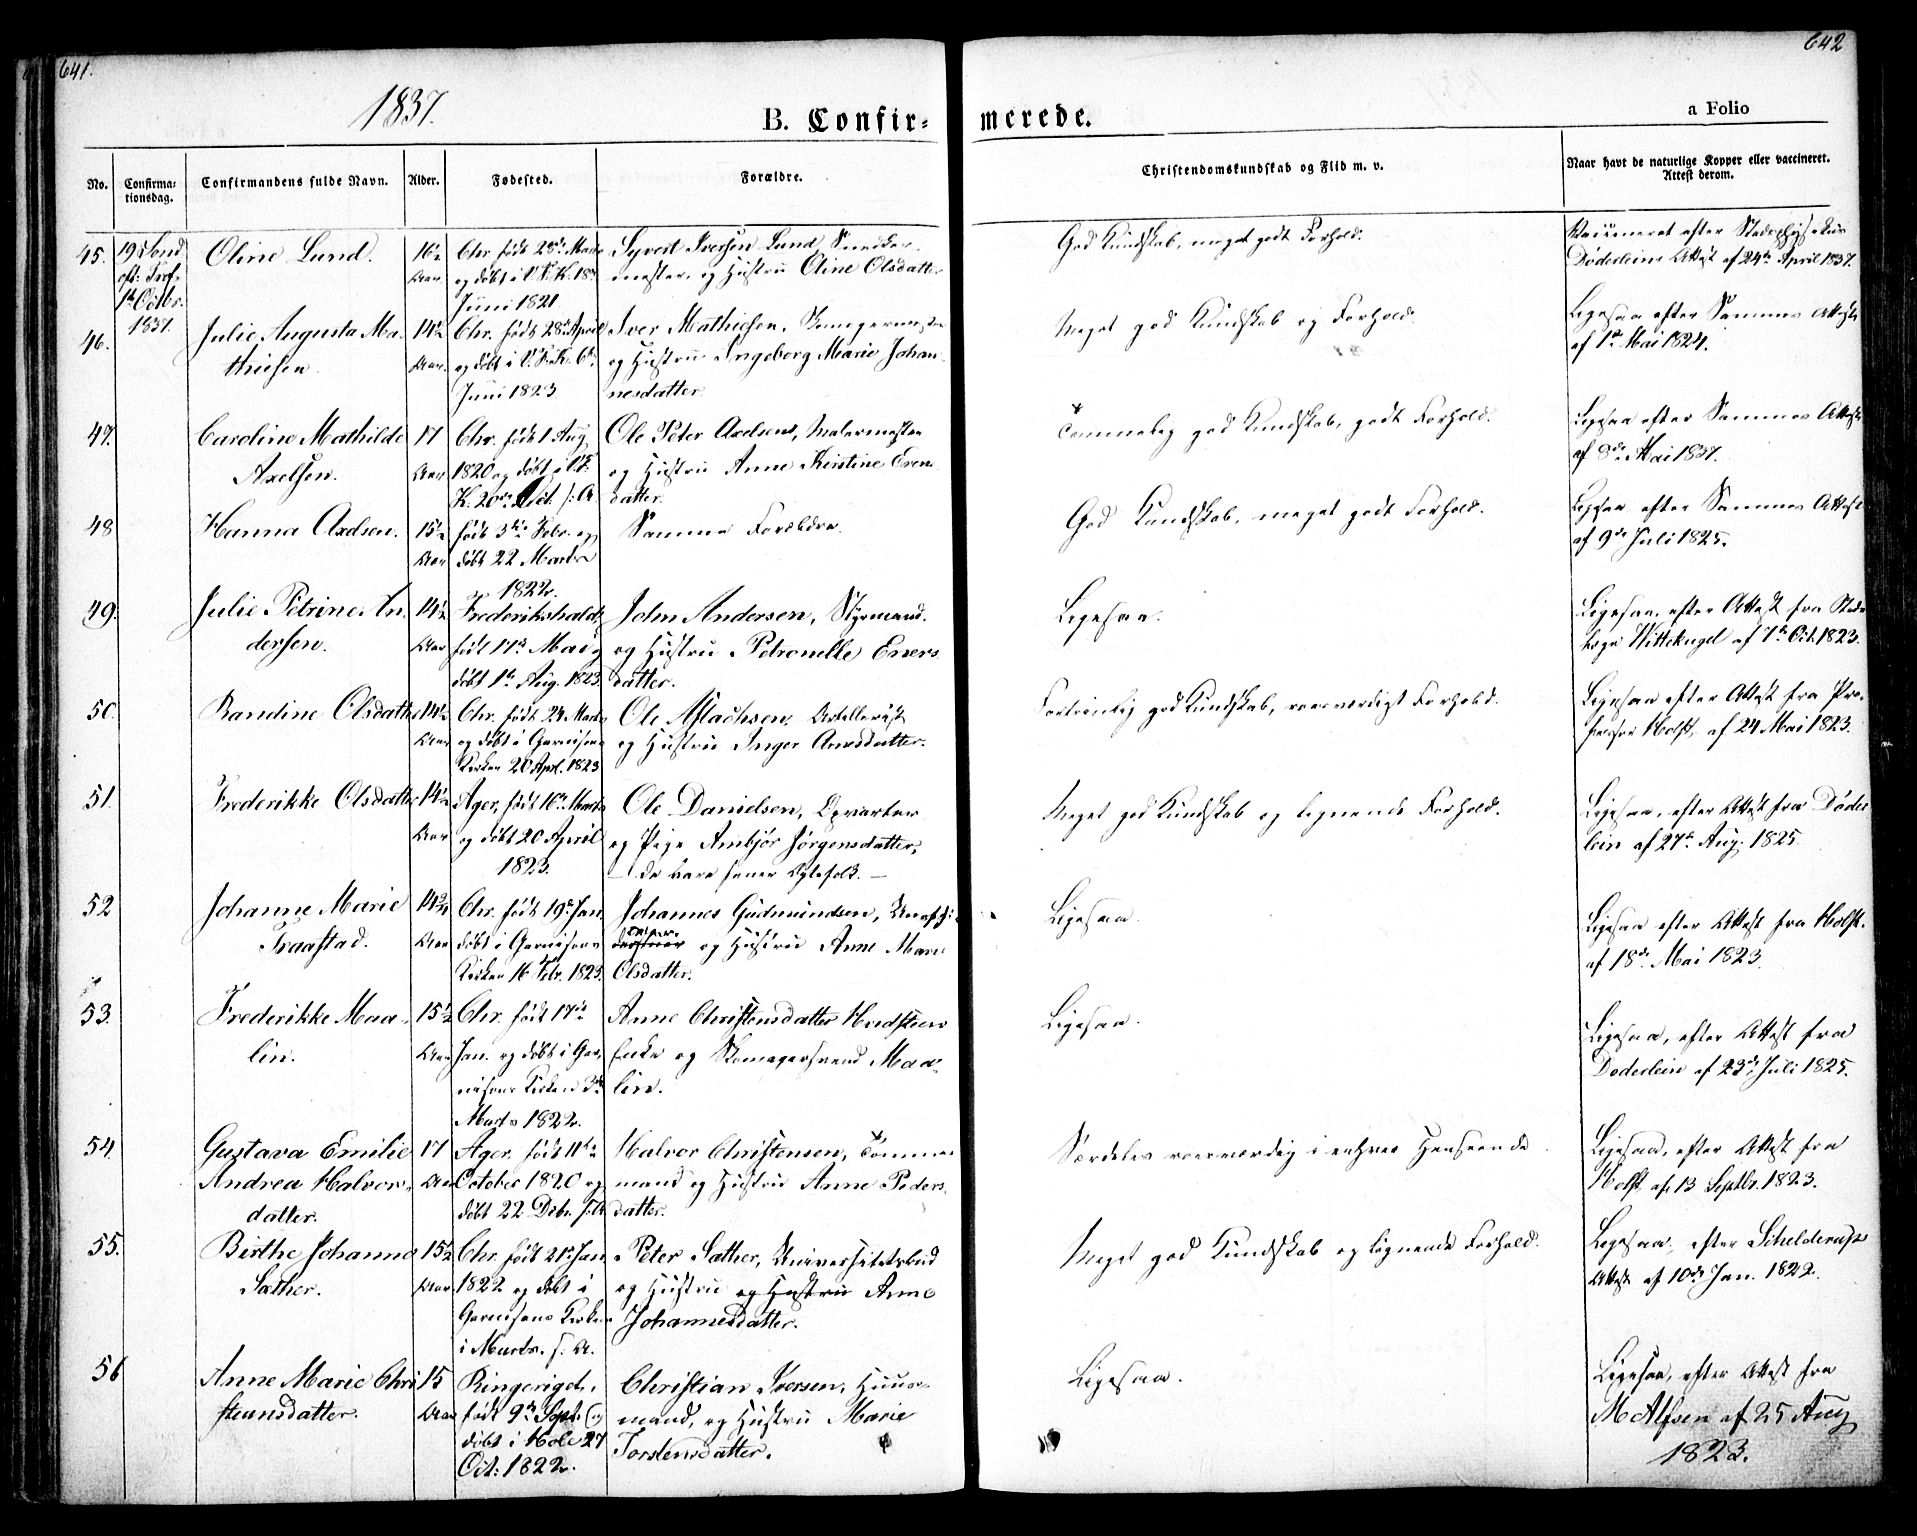 641.
642
1837.
B. Confir=
merede.
a Folio
No.
Confirma-
tionsdag.
Confirmandens fulde Navn.
Alder.
Fødested.
Forældre.
Christendomskundskab og Flid m. v.
Naar havt de naturlige Kopper eller vaccineret.
Attest derom.
45.
19 Sønd
eft: Tref.
1ste Octbr.
1837.
Oline Lund.
16½
Aar
Chr. født 28de Marts
og døbt i V. F. K. 18de
Juni 1821
Syvert Iversen Lund, Snedker-
mester, og Hustru Oline Olsdatter
God Kundskab, meget godt Forhold.
Vaccineret efter
Døderleins Attest af 24de April 1837.
46.
Julie Augusta Ma-
thiesen.
14½
Aar.
Chr. født 28de April
og døbt i V. F. K. 6te
Juni 1823
Iver Mathiesen, Skomagermester
og Hustru Ingeborg Marie Johan-
nesdatter.
Meget god Kundskab og Forhold.
Ligesaa efter Sammes Attest
af 1ste Mai 1824.
47.
Caroline Mathilde
Axelsen.
17
Aar
Chr. født 1 Aug.
1820 og døbt i V. F.
K. 20de Oct. s: A
Ole Peter Axelsen, Malermester
og Hustru Anne Kirstine Evens
datter.
Temmelig god Kundskab, godt Forhold.
Ligesaa efter Sammes Attest
af 8de Mai 1837.
48
Hanna Axelsen.
15½
Aar
født 3die Febr. og
døbt 22 Marts
1822.
Samme Forældre.
God Kundskab, meget godt Forhold.
Ligesaa efter Sammes Attest
af 9de Juli 1825.
49.
Julie Petrine An-
dersen.
14½
Aar
Frederikshald,
født 17de Mai og
døbt 1ste Aug. 1823.
John Andersen, Styrmand.
og Hustru Petronelle Eners
datter.
Ligesaa.
Ligesaa, efter Attest fra Stads
læge Wittekugel af 7de Oct. 1823.
50.
Randine Olsdatter
14½
Aar
Chr. født 24 Marts
og døbt i Garnisons
Kirken 20 Apr. 1823
Ole Aslachsen, Artellerist
og Hustru Inger Arnesdatter.
Fortrinlig god Kundskab, roesværdigt Forhold.
Ligesaa efter Attest fra Pro-
fessor Holst, af 24 Mai 1823.
51.
Frederikke Olsdatter
14½
Aar
Ager, født 16de Marts
og døbt 20 April
1823.
Ole Danielsen, Opvarter
og Pige Ambjør Jørgensdatter,
— de bare siener Ægtefolk. —
Meget god Kundskab og lignende Forhold.
Ligesaa, efter Attest fra Døder
lein af 27de Aug. 1825
52
Johanne Marie
Traastad.
14¾
Aar
Chr. født 19de Jan.
døbt i Garnisons
Kirken 16 Febr. 1823.
Johannes Gudmundsen,
og Hustru Anne Marie
Olsdatter.
Ligesaa.
Ligesaa efter Attest fra Holst.
af 18de Mai 1823.
53.
Frederikke Maa-
lin.
15½
Aar
Chr. født 17de
Jan. og døbt i Gar-
nisons Kirken 3die
Marts 1822.
Anne Christensdatter Hudsteen
Enke og Skomagersvend Maa-
lin.
Ligesaa.
Ligesaa, efter Attest fra
Døderlein af 23de Juli 1825.
54.
Gustava Emilie
Andrea Halvors-
datter.
17
Aar
Ager. født 11te
October 1820 og
døbt 22 Debr. s. A
Halvor Christensen, Tømmer
mand og Hustru Anne Peders-
datter.
Særdeles roesværdig i enhver Henseende.
Ligesaa, efter Attest fra
Holst af 13 Septbr. 1823.
55.
Birthe Johanne
Sæther.
15½
Aar
Chr. født 21de Jan.
1822 og døbt i
Garnisons Kirken
i Marts. s. A.
Peter Sæther, Universitetsbud
og Hustru og Hustru Anne
Johannesdatter.
Meget god Kundskab og lignende Forhold.
Ligesaa, efter Schelderups
Attest af 10de Jan. 1822.
56
Anne Marie Chri
stiansdatter.
15
Aar
Ringeriget,
født 9de Sept. og
døbt i Hole 27
Oct: 1822.
Christian Iversen, Huus-
mand, og Hustru Marie
Torstensdatter.
Ligesaa.
Ligesaa, efter Attest fra
M Alfsen af 25 Aug
1823.